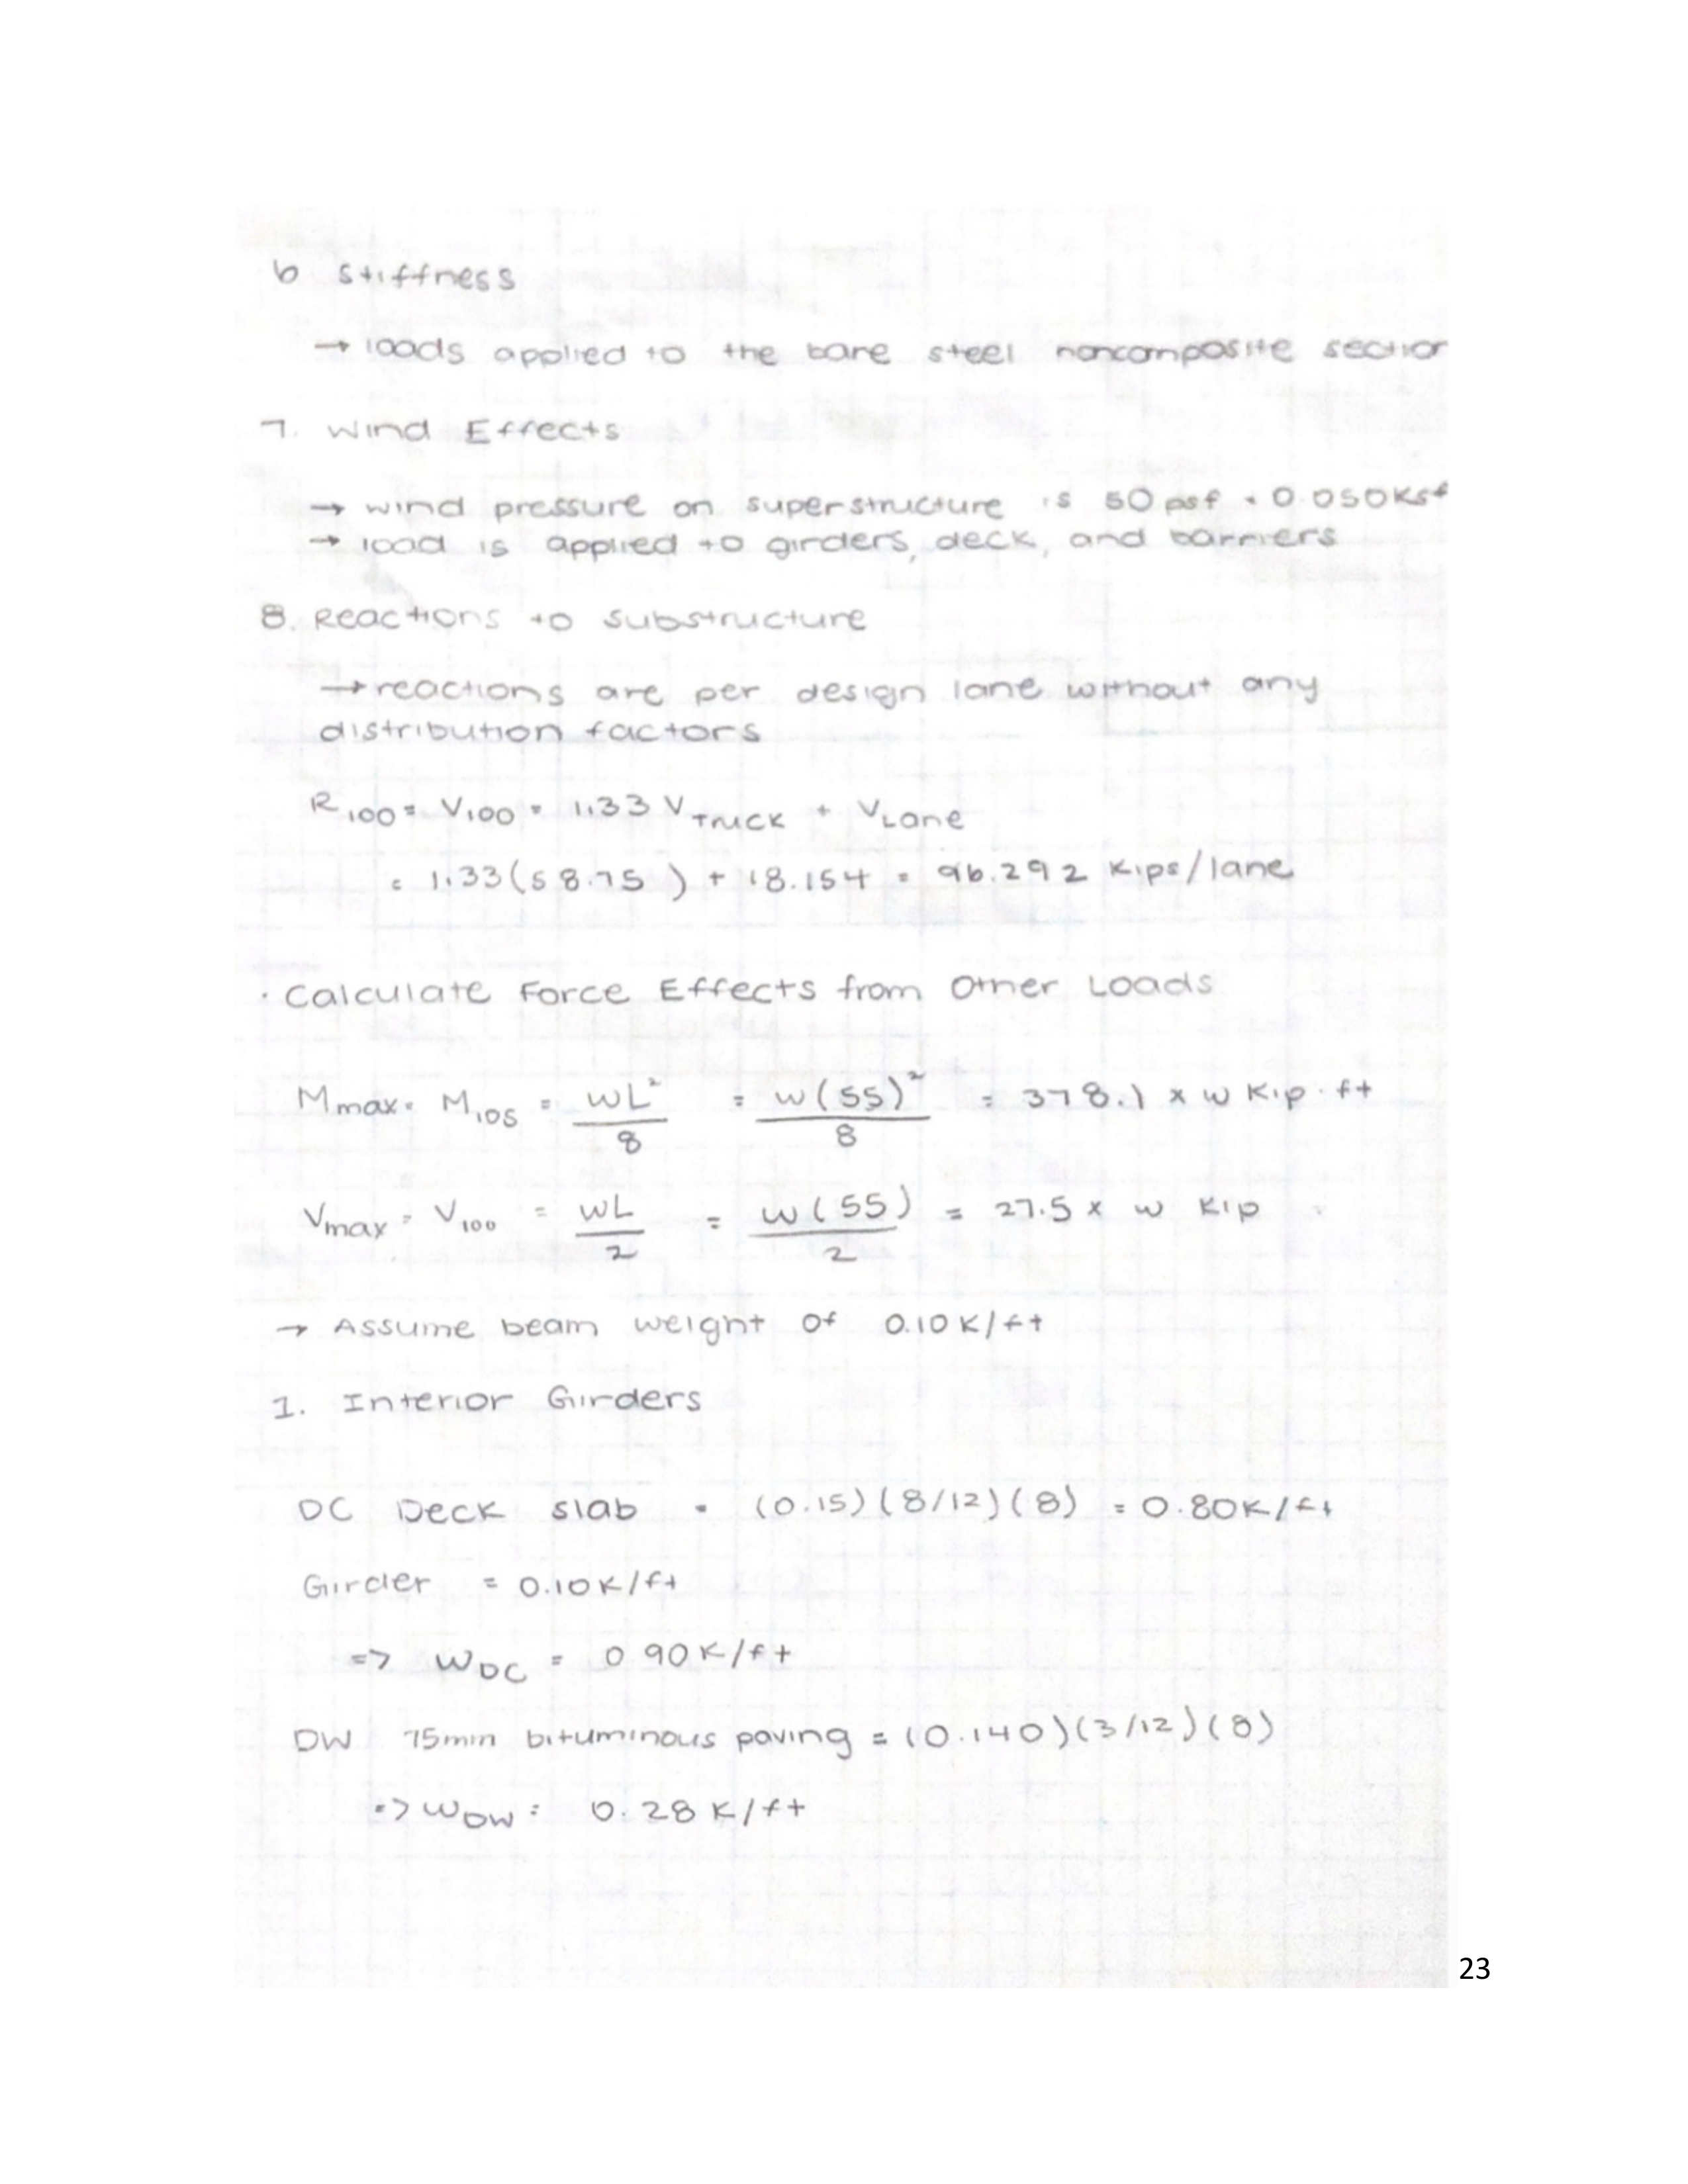 6 Stiffness
→ loads applied to the bare steel noncomposite section
7. Wind Effects
→ wind pressure on superstructure is 50 psf = 0.050 Ksf
→ load is applied to girders, deck, and barriers
8. Reactions to substructure
→ reactions are per design lane without any
distribution factors
R100 = V100 = 1.33 VTruck + VLane
= 1.33(58.75) + 18.154 = 96.292 Kips/lane
· Calculate Force Effects from Other Loads
Mmax = M105 = wL²/8 = w(55)²/8 = 378.1 x w Kip·ft
Vmax = V100 = wL/2 = w(55)/2 = 27.5 x w Kip
→ Assume beam weight of 0.10 K/ft
1. Interior Girders
DC Deck slab = (0.15)(8/12)(8) = 0.80 K/ft
Girder = 0.10 K/ft
=> WDC = 0.90 K/ft
DW 75mm bituminous paving = (0.140)(3/12)(8)
=> WDW = 0.28 K/ft
23